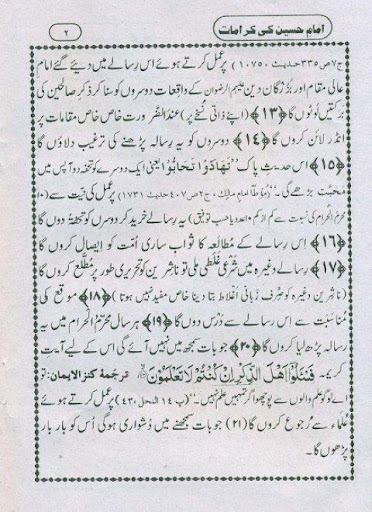 امام حسین کی کرامات
۲
ج۷ص۳۳۵حدیث ۱۰۷۵۰) پر عمل کرتے ہوئے اس رسالے میں دیئے گئے امامِ
عالی مقام اور بُزُرگانِ دین علیہم الرضوان کے واقعات دوسروں کو سنا کر ذکرِ صالحین کی
برکتیں لوٹوں گا ﴿۱۳﴾ (اپنے ذاتی نُسخے پر) عِندَ الضَّرورت خاص خاص مقامات پر
انڈر لائن کروں گا ﴿۱۴﴾ دوسروں کو یہ رسالہ پڑھنے کی ترغیب دلاؤں گا
﴿۱۵﴾ اس حدیثِ پاک ”تَهَادَوْا تَحَابُّوْا“ یعنی ایک دوسرے کو تحفہ دو آپس میں
محبت بڑھے گی۔“ (مؤطا امام مالک، ج۲ص۴۰۷حدیث ۱۷۳۱) پر عمل کی نیت سے (۱۰
محرم الحرام کی نسبت سے کم از کم ۱۰عدد یا حسبِ توفیق) یہ رسالے خرید کر دوسروں کو تحفۃً دوں گا
﴿۱۶﴾ اس رسالے کے مُطالَعہ کا ثواب ساری اُمّت کو ایصال کروں گا
﴿۱۷﴾ رسالے وغیرہ میں شَرعی غَلَطی ملی تو ناشرین کو تحریری طور پر مُطَّلع کروں گا
(ناشِرین وغیرہ کو صرف زبانی اَغلاط بتا دینا خاص مفید نہیں ہوتا) ﴿۱۸﴾ موقع کی
مُناسَبَت سے اس رسالے سے دَرْس دوں گا ﴿۱۹﴾ ہر سال محرّمُ الحرام میں یہ
رسالہ پڑھ لیا کروں گا ﴿۲۰﴾ جو بات سمجھ میں نہیں آئے گی اس کے لیے آیتِ
کریمہ فَسْـَٔلُوْۤا اَهْلَ الذِّكْرِ اِنْ كُنْتُمْ لَا تَعْلَمُوْنَ ترجَمۂ کنز الایمان: تو
اے لوگو علم والوں سے پوچھو اگر تمہیں علم نہیں۔“ (پ ۱۴ النحل،۴۳) پر عمل کرتے ہوئے
عُلَماء سے رُجوع کروں گا (۲۱) جو بات سمجھنے میں دُشواری ہو گی اُس کو بار بار
پڑھوں گا۔